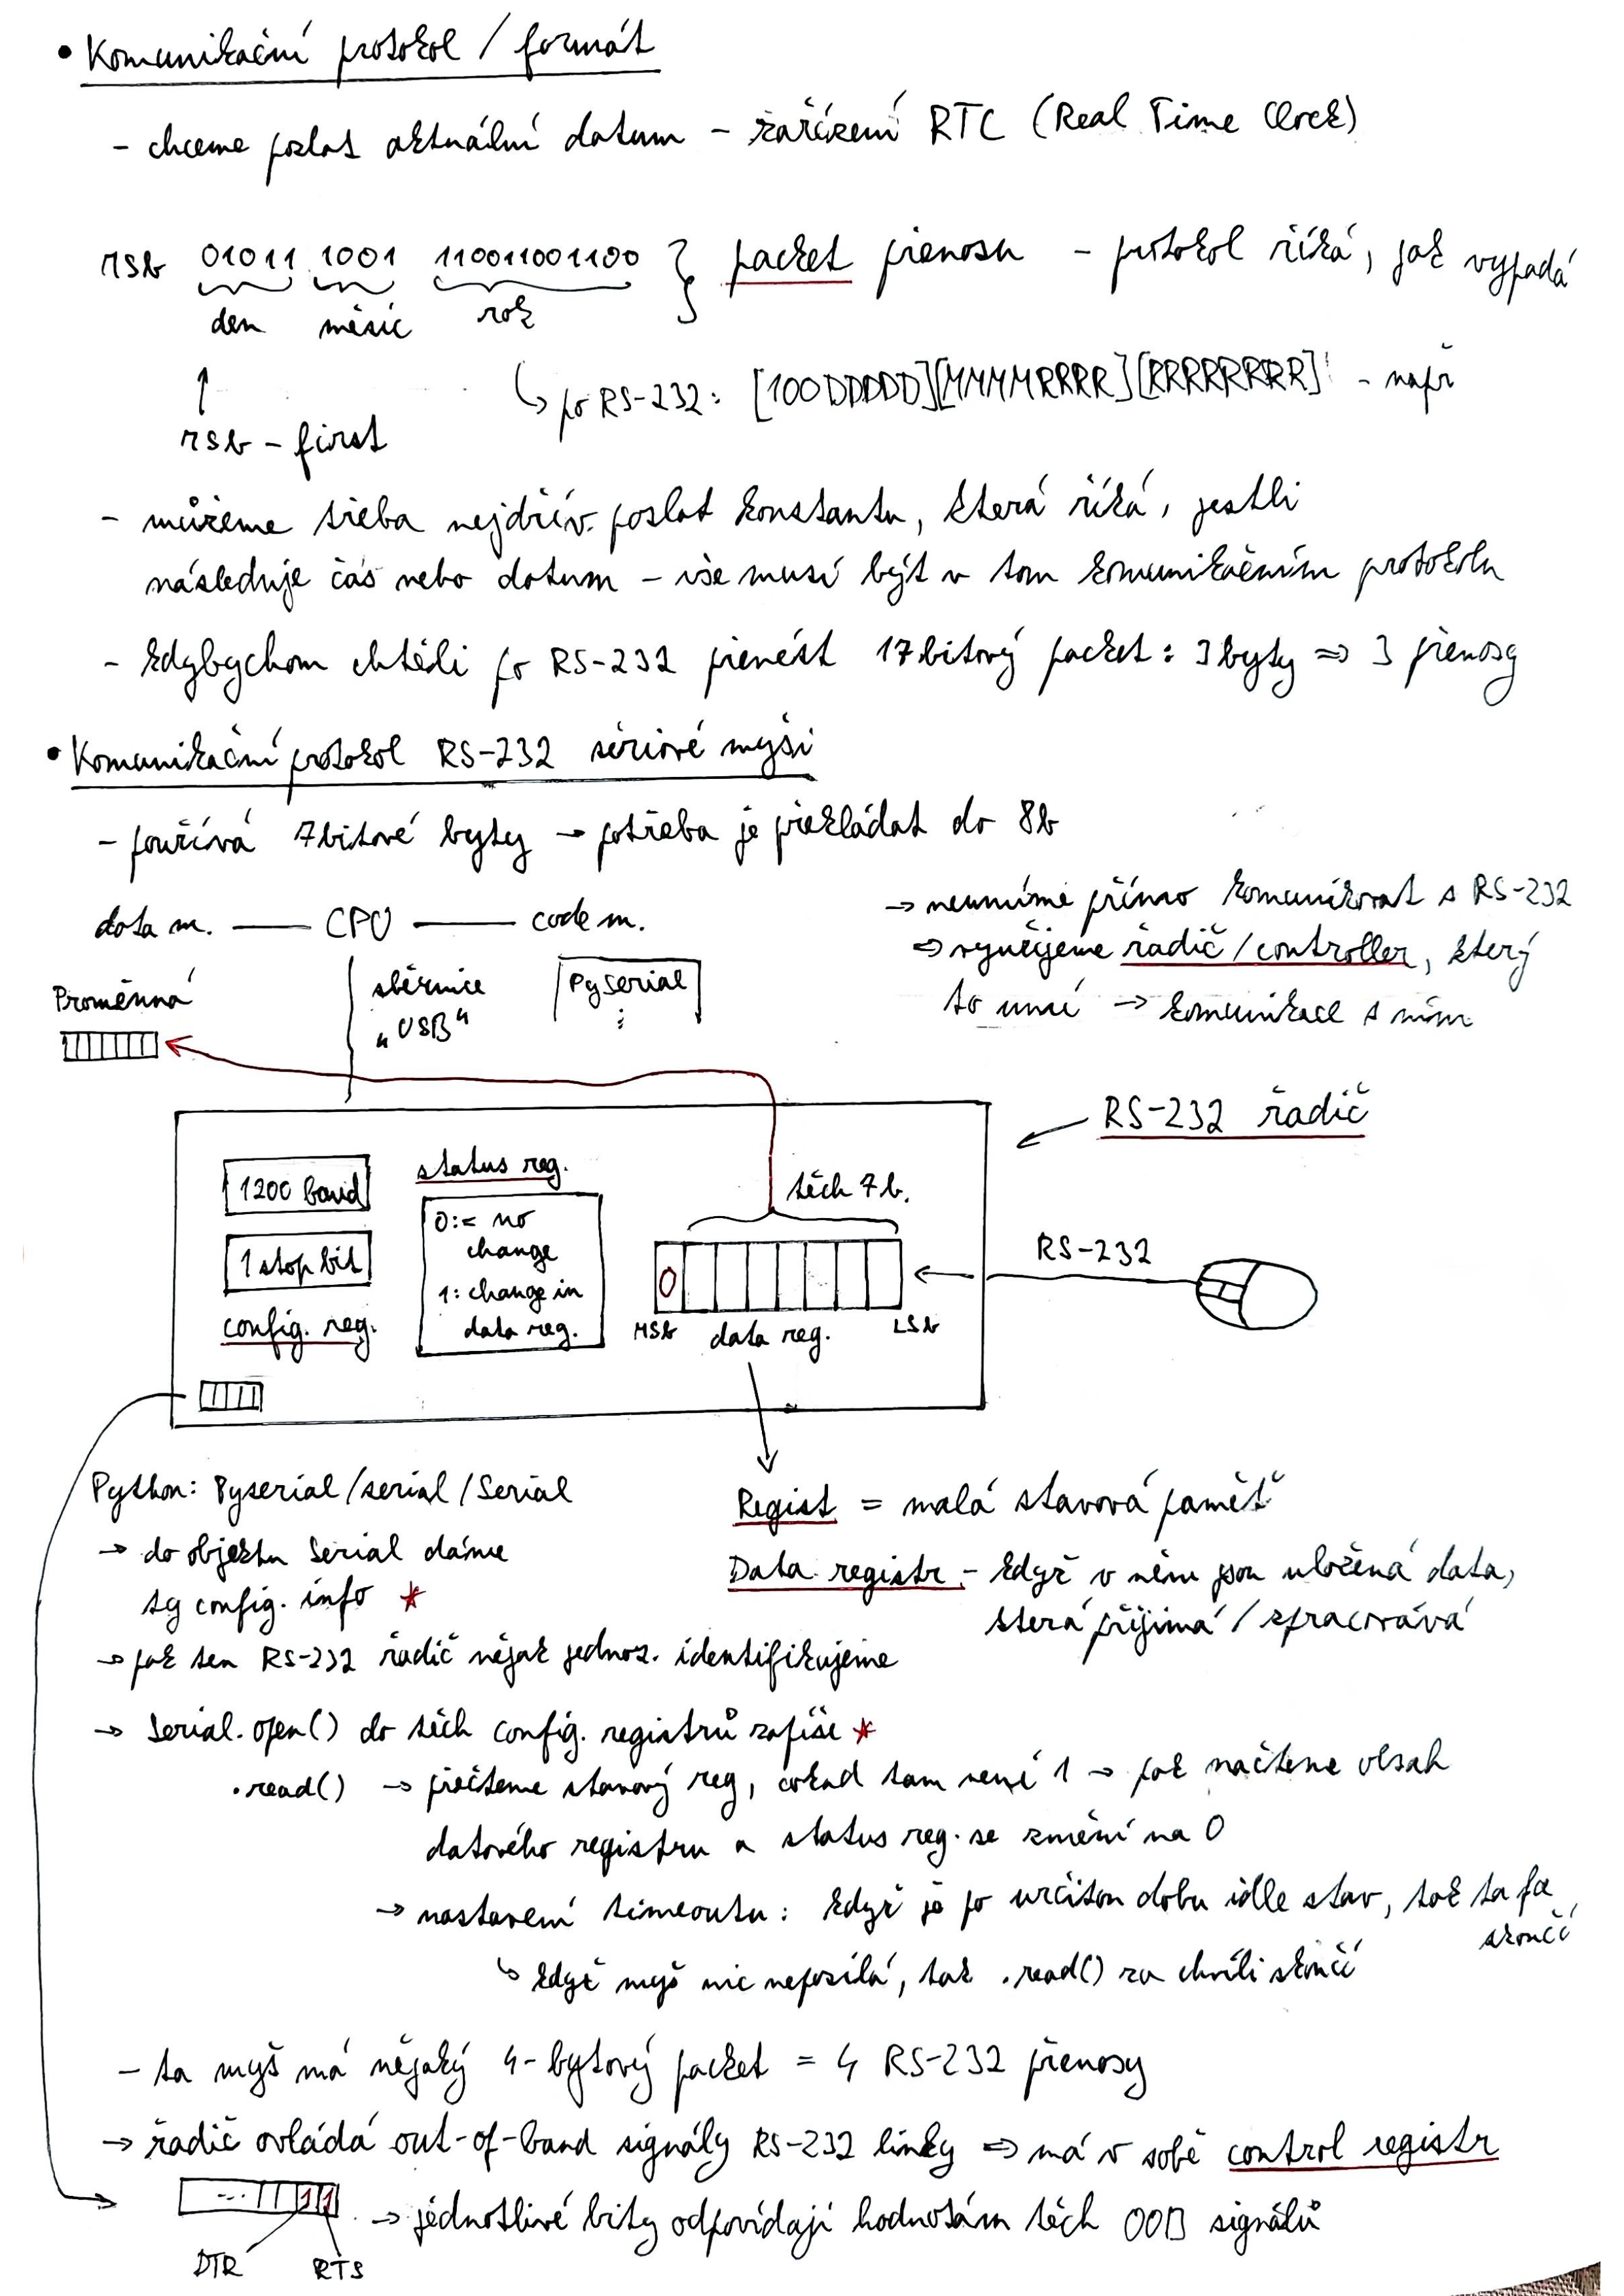 • Komunikační protokol / formát
- chceme poslat aktuální datum - zařízení RTC (Real Time Clock)
MSb 01011 1001 11001001100 } packet přenosu - protokol říká, jak vypadá
den měsíc rok
↳ po RS-232: [100DDDDD][MMMMRRRR][RRRRRRRR] - např
↑
MSb - first
- můžeme třeba nejdřív poslat konstantu, která říká, jestli
následuje čas nebo datum - vše musí být v tom komunikačním protokolu
- kdybychom chtěli po RS-232 přenést 17bitový packet: 3 byty ⇒ 3 přenosy
• Komunikační protokol RS-232 sériové myši
- používá 7bitové byty → potřeba je překládat do 8b
data m. — CPU — code m.
→ neumíme přímo komunikovat s RS-232
⇒ využijeme řadič / controller, který
to umí → komunikace s ním
Proměnná
sběrnice
"USB"
Pyserial
⋮
RS-232 řadič
1200 baud
1 stop bit
config. reg.
status reg.
0:= no
change
1: change in
data reg.
těch 7 b.
0
MSb data reg. LSb
RS-232
Python: Pyserial/serial/Serial
→ do objektu Serial dáme
ty config. info *
→ pak ten RS-232 řadič nějak jednoz. identifikujeme
Regist = malá stavová paměť
Data registr - když v něm jsou uložená data,
která přijímá / zpracovává
→ Serial.open() do těch config. registrů zapíše *
.read() → přečteme stavový reg, dokud tam není 1 → pak načteme obsah
datového registru a status reg. se změní na 0
→ nastavení timeoutu: když je po určitou dobu idle stav, tak ta fce
skončí
↳ když myš nic neposílá, tak .read() za chvíli skončí
- ta myš má nějaký 4-bytový packet = 4 RS-232 přenosy
→ řadič ovládá out-of-band signály RS-232 linky ⇒ má v sobě control registr
... 1 1 → jednotlivé bity odpovídají hodnotám těch OOB signálů
DTR RTS